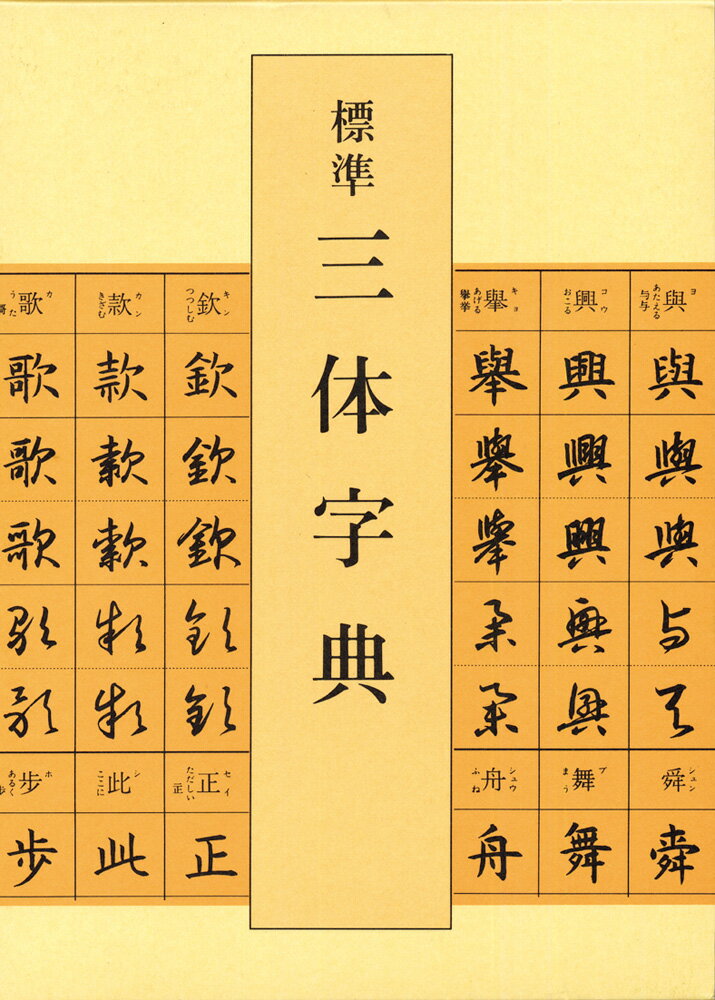 標準 三体字典
與 ヨ あたえる 与与
與
與
與
与
与
舜 シュン
舜
興 コウ おこる
興
興
興
興
興
舞 ブ まう
舞
擧 キョ あげる 舉挙
擧
擧
擧
挙
挙
舟 シュウ ふね
舟
欽 キン つつしむ
欽
欽
欽
欽
欽
正 セイ ただしい 正
正
款 カン きざむ
款
款
款
款
款
此 シ ここに
此
歌 カ うた
歌
歌
歌
歌
歌
歩 ホ あるく
歩